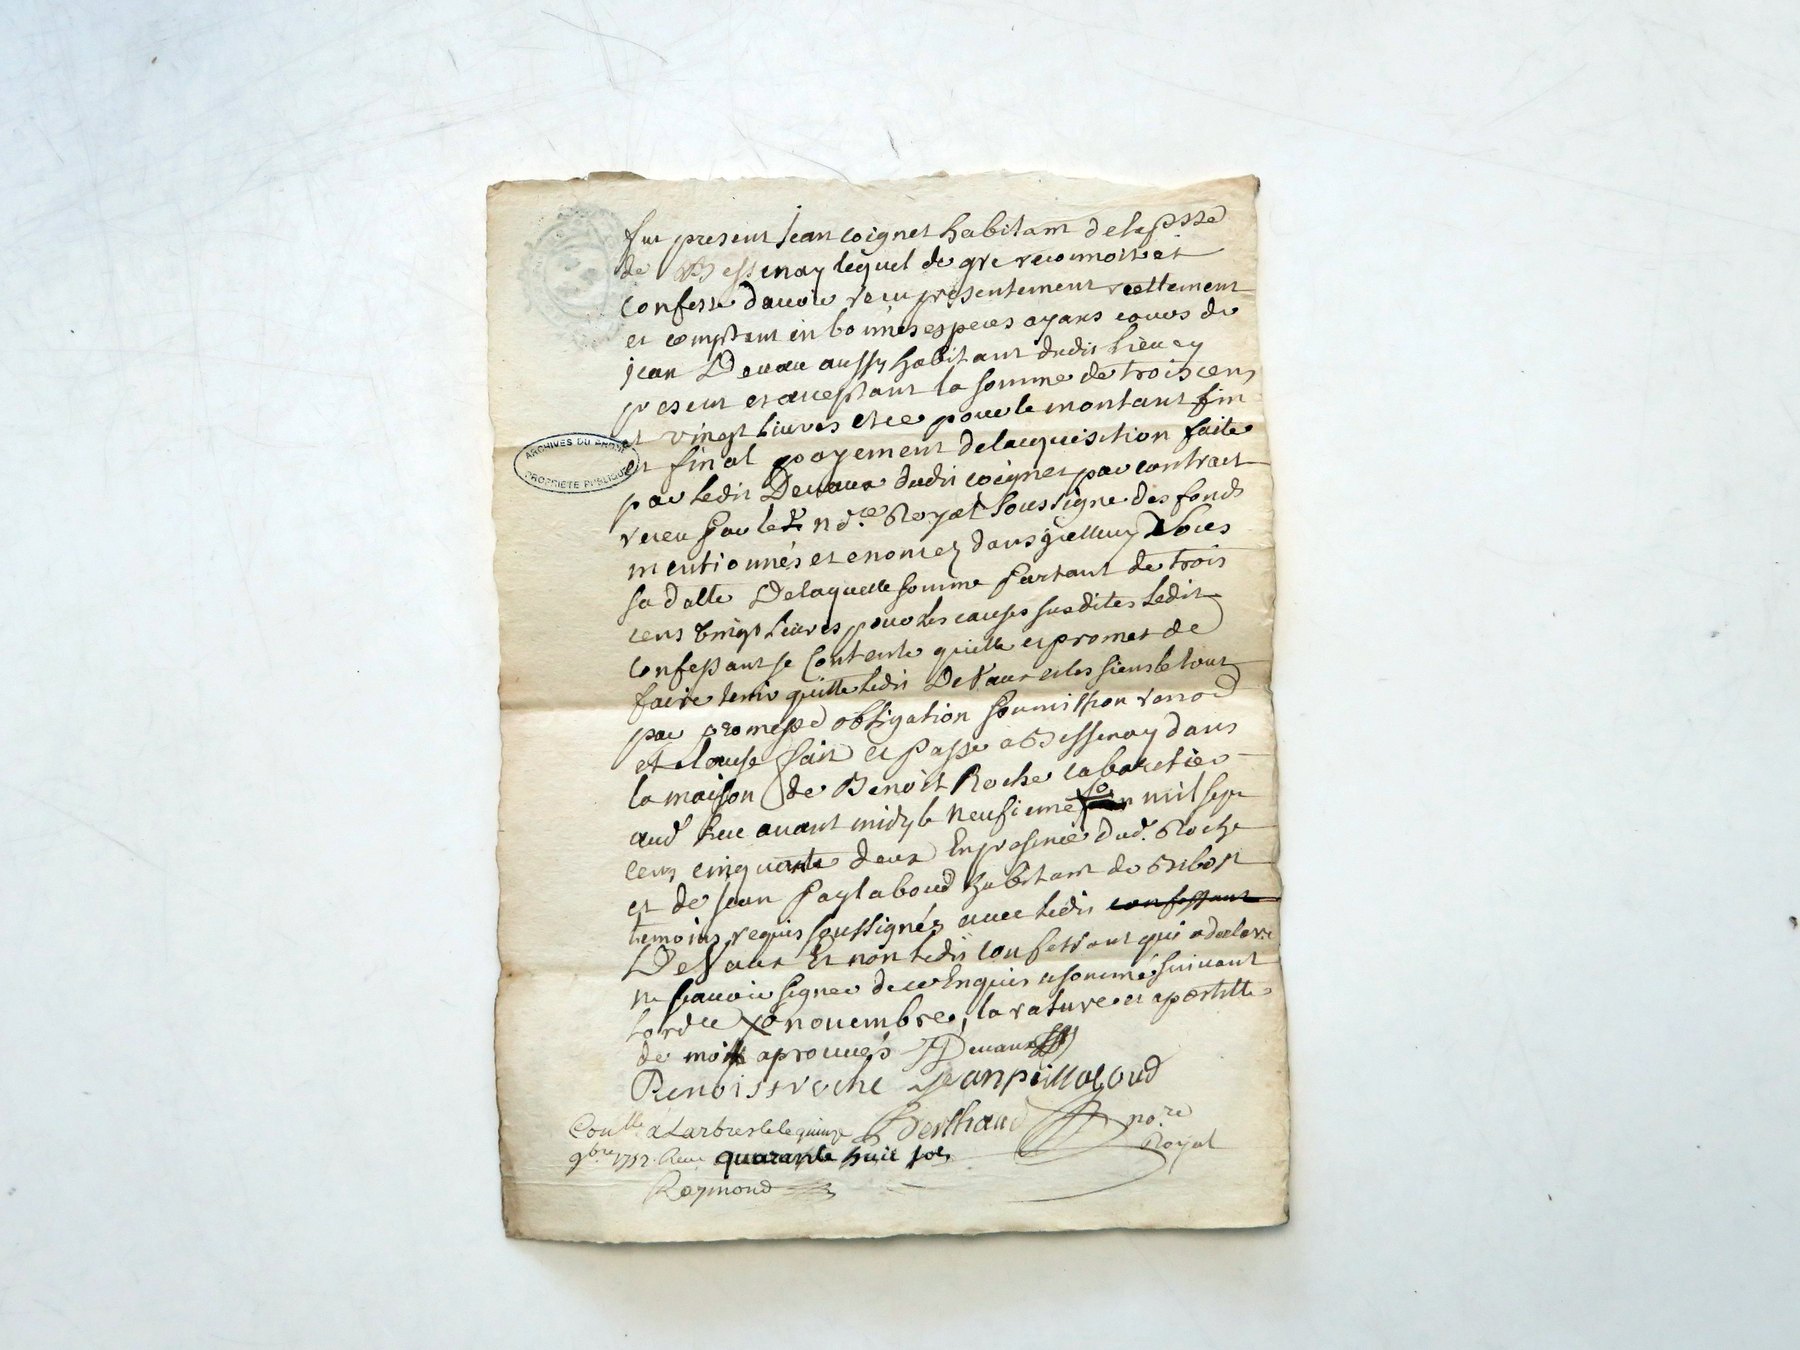 fut present Jean Coignet habitant de la psse
de Bessenay lequel de gre reconnoit et
confesse davoir receu presentement reellement
et comptant en bonnes especes ayans cours de
jean Devaux aussy habitant dudit lieu cy
present et acceptant la somme de trois cens
et vingt livres et ce pour le montant fin
et final payement de lacquisition faite
par ledit Devaux dudit Coignet par contract
receu par le nore Royal soussigne des fonds
mentionnés et enoncez dans jcelluy sous
sa datte De laquelle somme partant de trois
cens vingt livres pour les causes susdites ledit
confessant se contente quitte et promet de
faire tenir quitte ledit Devaux et les siens le tout
par promesse obligation soumission renon
et clause fait et passe a Bessenay dans
la maison de Benoit Roche cabaretier
aud lieu avant midy le neufieme mil sept
cens cinquante deux En presence dud. Roche
et de jean habitant de
temoins requis soussignéz avec ledit confessant
Devaux et non ledit confessant qui a declare
ne scavoir signer de ce Enquis et sommé suivant
lordce novembre, la rature et apostille
de mots aprouvés JDevaux
Benoist roche Jean
Conlle a Larbresle le quinze Berthaud nore
9bre 1752 Receu quarante huit sols Royal
Raymond
ARCHIVES DU RHONE
PROPRIETE PUBLIQUE